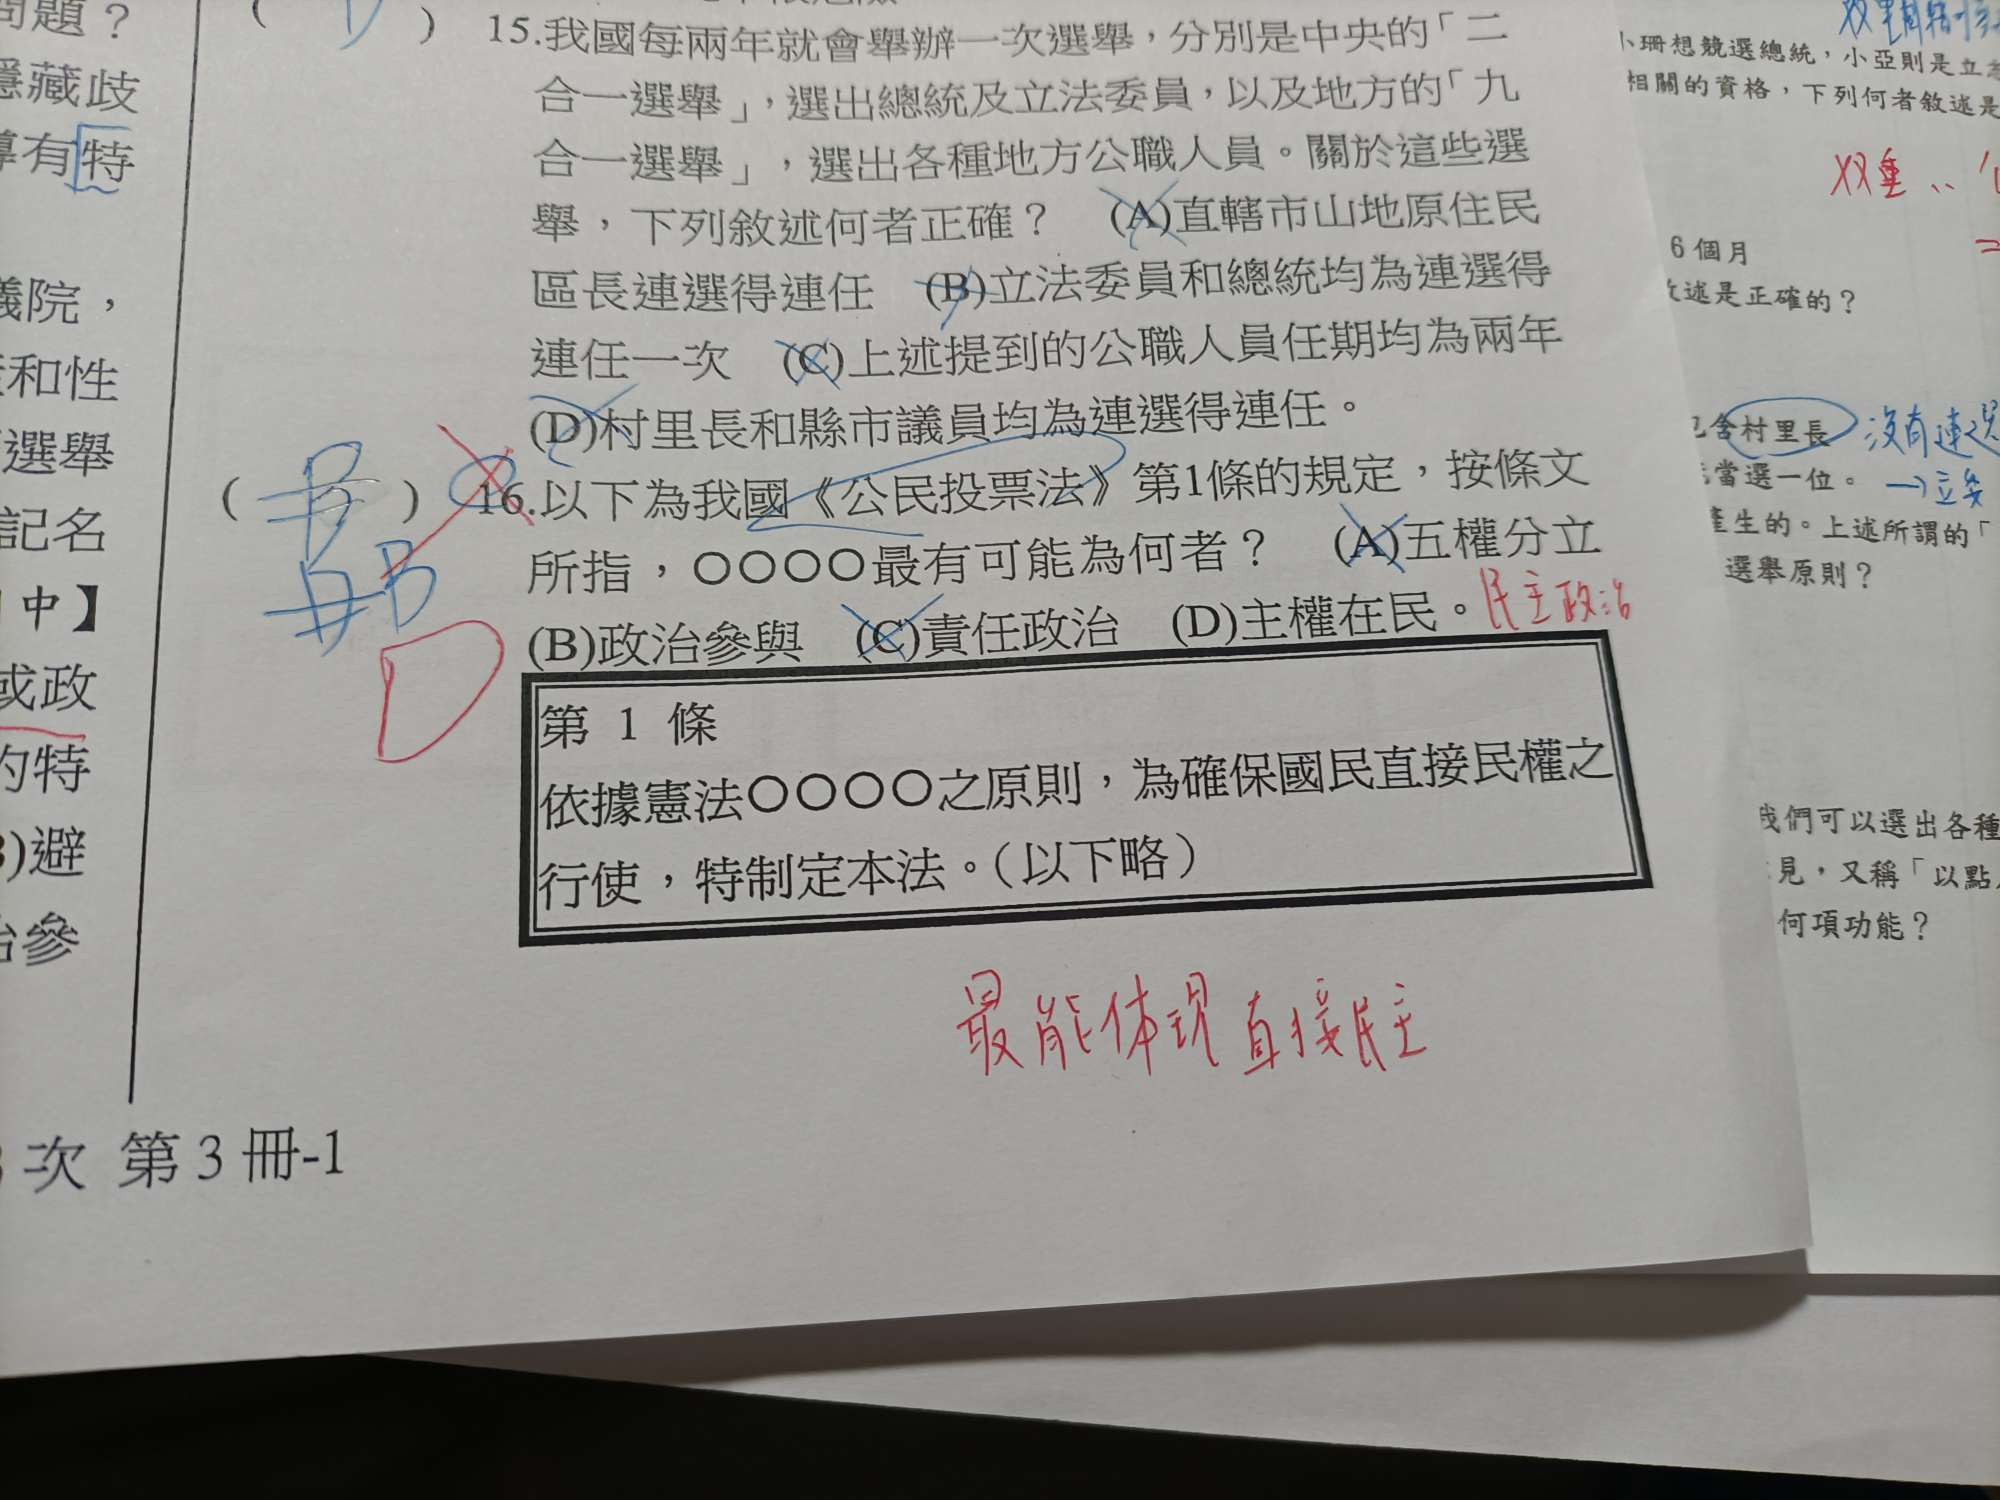 問題？
隱藏歧
導有特
議院，
和性
選舉
記名
中】
或政
的特
)避
治參
次 第3冊-1
( D ) 15.我國每兩年就會舉辦一次選舉，分別是中央的「二
合一選舉」，選出總統及立法委員，以及地方的「九
合一選舉」，選出各種地方公職人員。關於這些選
舉，下列敘述何者正確？ (A)直轄市山地原住民
區長連選得連任 (B)立法委員和總統均為連選得
連任一次 (C)上述提到的公職人員任期均為兩年
(D)村里長和縣市議員均為連選得連任。
( B ) 16.以下為我國《公民投票法》第1條的規定，按條文
所指，○○○○最有可能為何者？ (A)五權分立
(B)政治參與 (C)責任政治 (D)主權在民。民主政治
B
D
第 1 條
依據憲法○○○○之原則，為確保國民直接民權之
行使，特制定本法。（以下略）
最能体現直接民主
小珊想競選總統，小亞則是立
相關的資格，下列何者敘述是
双重
6個月
敘述是正確的？
包含村里長 沒有連選
當選一位。→立委
產生的。上述所謂的「
選舉原則？
我們可以選出各種
見，又稱「以點
何項功能？